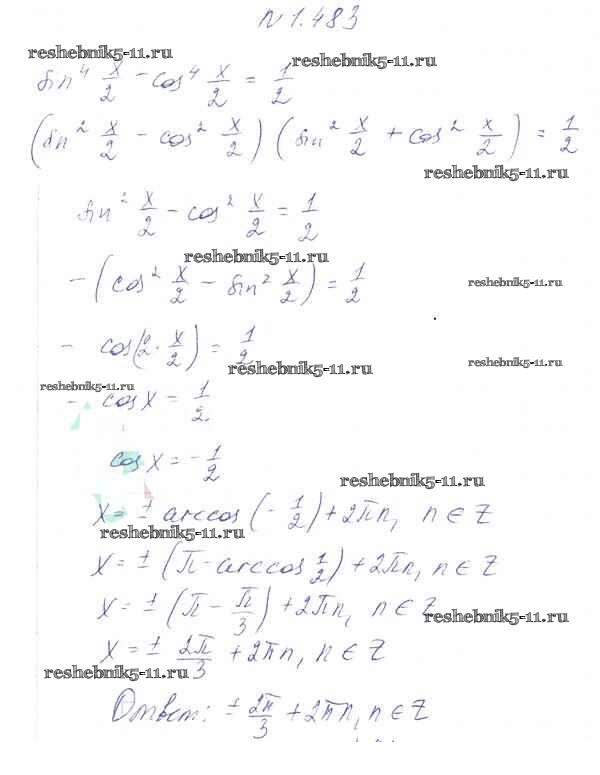 N 1.483
reshebnik5-11.ru reshebnik5-11.ru
sin⁴ x/2 - cos⁴ x/2 = 1/2
(sin² x/2 - cos² x/2) (sin² x/2 + cos² x/2) = 1/2
reshebnik5-11.ru
sin² x/2 - cos² x/2 = 1/2
reshebnik5-11.ru
- (cos² x/2 - sin² x/2) = 1/2
reshebnik5-11.ru
- cos(2 · x/2) = 1/2
reshebnik5-11.ru reshebnik5-11.ru
reshebnik5-11.ru
- cos x = 1/2
cos x = - 1/2
reshebnik5-11.ru
x = ± arccos(- 1/2) + 2πn, n ∈ Z
reshebnik5-11.ru
x = ± (π - arccos 1/2) + 2πn, n ∈ Z
x = ± (π - π/3) + 2πn, n ∈ Z
reshebnik5-11.ru
x = ± 2π/3 + 2πn, n ∈ Z
reshebnik5-11.ru
Ответ: ± 2π/3 + 2πn, n ∈ Z